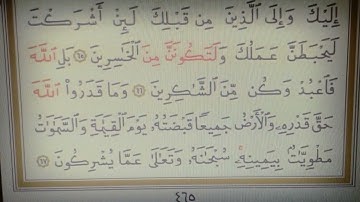 إِلَيْكَ وَإِلَى ٱلَّذِينَ مِن قَبْلِكَ لَئِنْ أَشْرَكْتَ
لَيَحْبَطَنَّ عَمَلُكَ وَلَتَكُونَنَّ مِنَ ٱلْخَٰسِرِينَ ٦٥ بَلِ ٱللَّهَ
فَٱعْبُدْ وَكُن مِّنَ ٱلشَّٰكِرِينَ ٦٦ وَمَا قَدَرُوا۟ ٱللَّهَ
حَقَّ قَدْرِهِۦ وَٱلْأَرْضُ جَمِيعًا قَبْضَتُهُۥ يَوْمَ ٱلْقِيَٰمَةِ وَٱلسَّمَٰوَٰتُ
مَطْوِيَّٰتٌۢ بِيَمِينِهِۦ سُبْحَٰنَهُۥ وَتَعَٰلَىٰ عَمَّا يُشْرِكُونَ ٦٧
٤٦٥